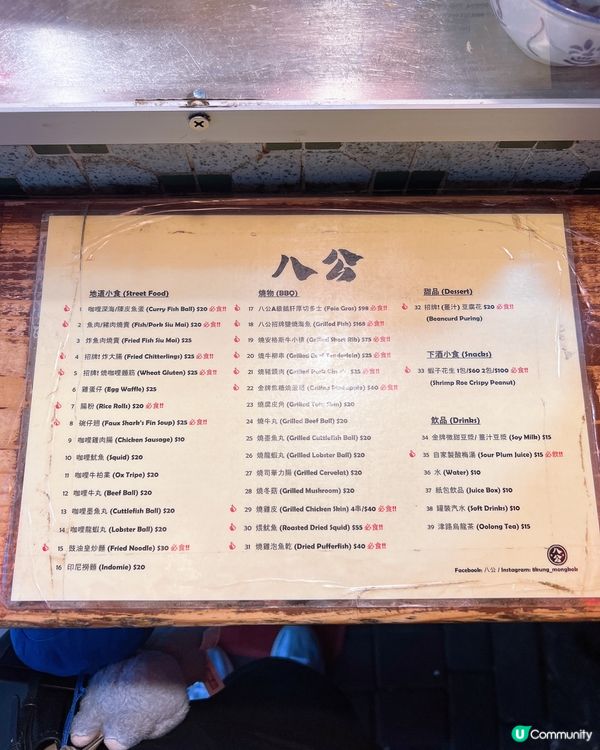 八公
地道小食 (Street Food)
1 咖哩深海/陳皮魚蛋 (Curry Fish Ball) $20 必食!!
2 魚肉/豬肉燒賣 (Fish/Pork Siu Mai) $20 必食!!
3 炸魚肉燒賣 (Fried Fish Siu Mai) $25
4 招牌! 炸大腸 (Fried Chitterlings) $25 必食!!
5 招牌! 燒咖喱麵筋 (Wheat Gluten) $25 必食!!
6 雞蛋仔 (Egg Waffle) $25
7 腸粉 (Rice Rolls) $20 必食!!
8 碗仔翅 (Faux Shark's Fin Soup) $25 必食!!
9 咖哩雞肉腸 (Chicken Sausage) $10
10 咖哩魷魚 (Squid) $20
11 咖哩牛柏葉 (Ox Tripe) $20
12 咖哩牛丸 (Beef Ball) $20
13 咖哩墨魚丸 (Cuttlefish Ball) $20
14 咖哩龍蝦丸 (Lobster Ball) $20
15 豉油皇炒麵 (Fried Noodle) $30 必食!!
16 印尼撈麵 (Indomie) $20
燒物 (BBQ)
17 八公A級鵝肝厚切多士 (Foie Gras) $98 必食!!
18 八公招牌鹽燒海魚 (Grilled Fish) $168 必食!!
19 燒安格斯牛小排 (Grilled Short Rib) $75 必食!!
20 燒牛柳串 (Grilled Beef Tenderloin) $25 必食!!
21 燒豬頸肉 (Grilled Pork Cheek) $35 必食!!
22 金牌煎糖燒菠蘿 (Grilled Pineapple) $40 必食!!
23 燒腐皮角 (Grilled Tofu Skin) $20
24 燒牛丸 (Grilled Beef Ball) $20
25 燒墨魚丸 (Grilled Cuttlefish Ball) $20
26 燒龍蝦丸 (Grilled Lobster Ball) $20
27 燒司華力腸 (Grilled Cervelat) $20
28 燒冬菇 (Grilled Mushroom) $20
29 燒雞皮 (Grilled Chicken Skin) 4串/$40 必食!!
30 煨魷魚 (Roasted Dried Squid) $55 必食!!
31 燒雞泡魚乾 (Dried Pufferfish) $40 必食!!
甜品 (Dessert)
32 招牌! (薑汁) 豆腐花 $20 必食!!
(Beancurd Puring)
下酒小食 (Snacks)
33 蝦子花生 1包/$60 2包/$100 必食!!
(Shrimp Roe Crispy Peanut)
飲品 (Drinks)
34 金牌微甜豆漿/ 薑汁豆漿 (Soy Milk) $15
35 自家製酸梅湯 (Sour Plum Juice) $15 必飲!!
36 水 (Water) $10
37 紙包飲品 (Juice Box) $10
38 罐裝汽水 (Soft Drinks) $10
39 津路烏龍茶 (Oolong Tea) $15
八公
Facebook: 八公 / Instagram: 8kung_mongkok
U Community